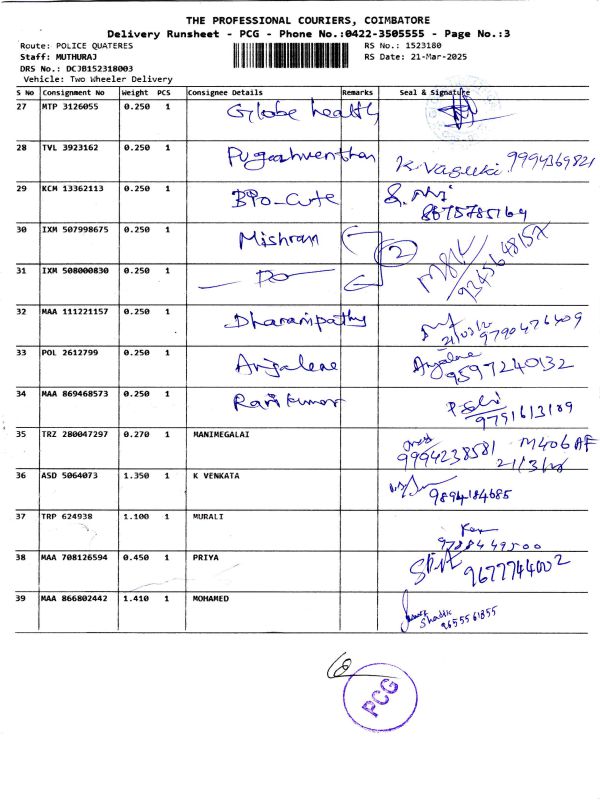 THE PROFESSIONAL COURIERS, COIMBATORE
Delivery Runsheet - PCG - Phone No.:0422-3505555 - Page No.:3
Route: POLICE QUATERES RS No.: 1523180
Staff: MUTHURAJ RS Date: 21-Mar-2025
DRS No.: DCJB152318003
Vehicle: Two Wheeler Delivery
S No Consignment No Weight PCS Consignee Details Remarks Seal & Signature
27 MTP 3126055 0.250 1 Globe health
28 TVL 3923162 0.250 1 Pugazhventhan K.Vasuki. 9994369821
29 KCM 13362113 0.250 1 Bio-Cute 8675785164
30 IXM 507998675 0.250 1 Mishram 2
31 IXM 508000830 0.250 1 — Do — 9345648157
32 MAA 111221157 0.250 1 Dharanipathy 9790476409
33 POL 2612799 0.250 1 Anjalene Anjalene 9597240132
34 MAA 869468573 0.250 1 Ravikumar P.Selvi 9751613189
35 TRZ 280047297 0.270 1 MANIMEGALAI 9994238581 M406AF
36 ASD 5064073 1.350 1 K VENKATA 9894184685
37 TRP 624938 1.100 1 MURALI 9788449500
38 MAA 708126594 0.450 1 PRIYA 9677744002
39 MAA 866802442 1.410 1 MOHAMED 9655561855
PCG